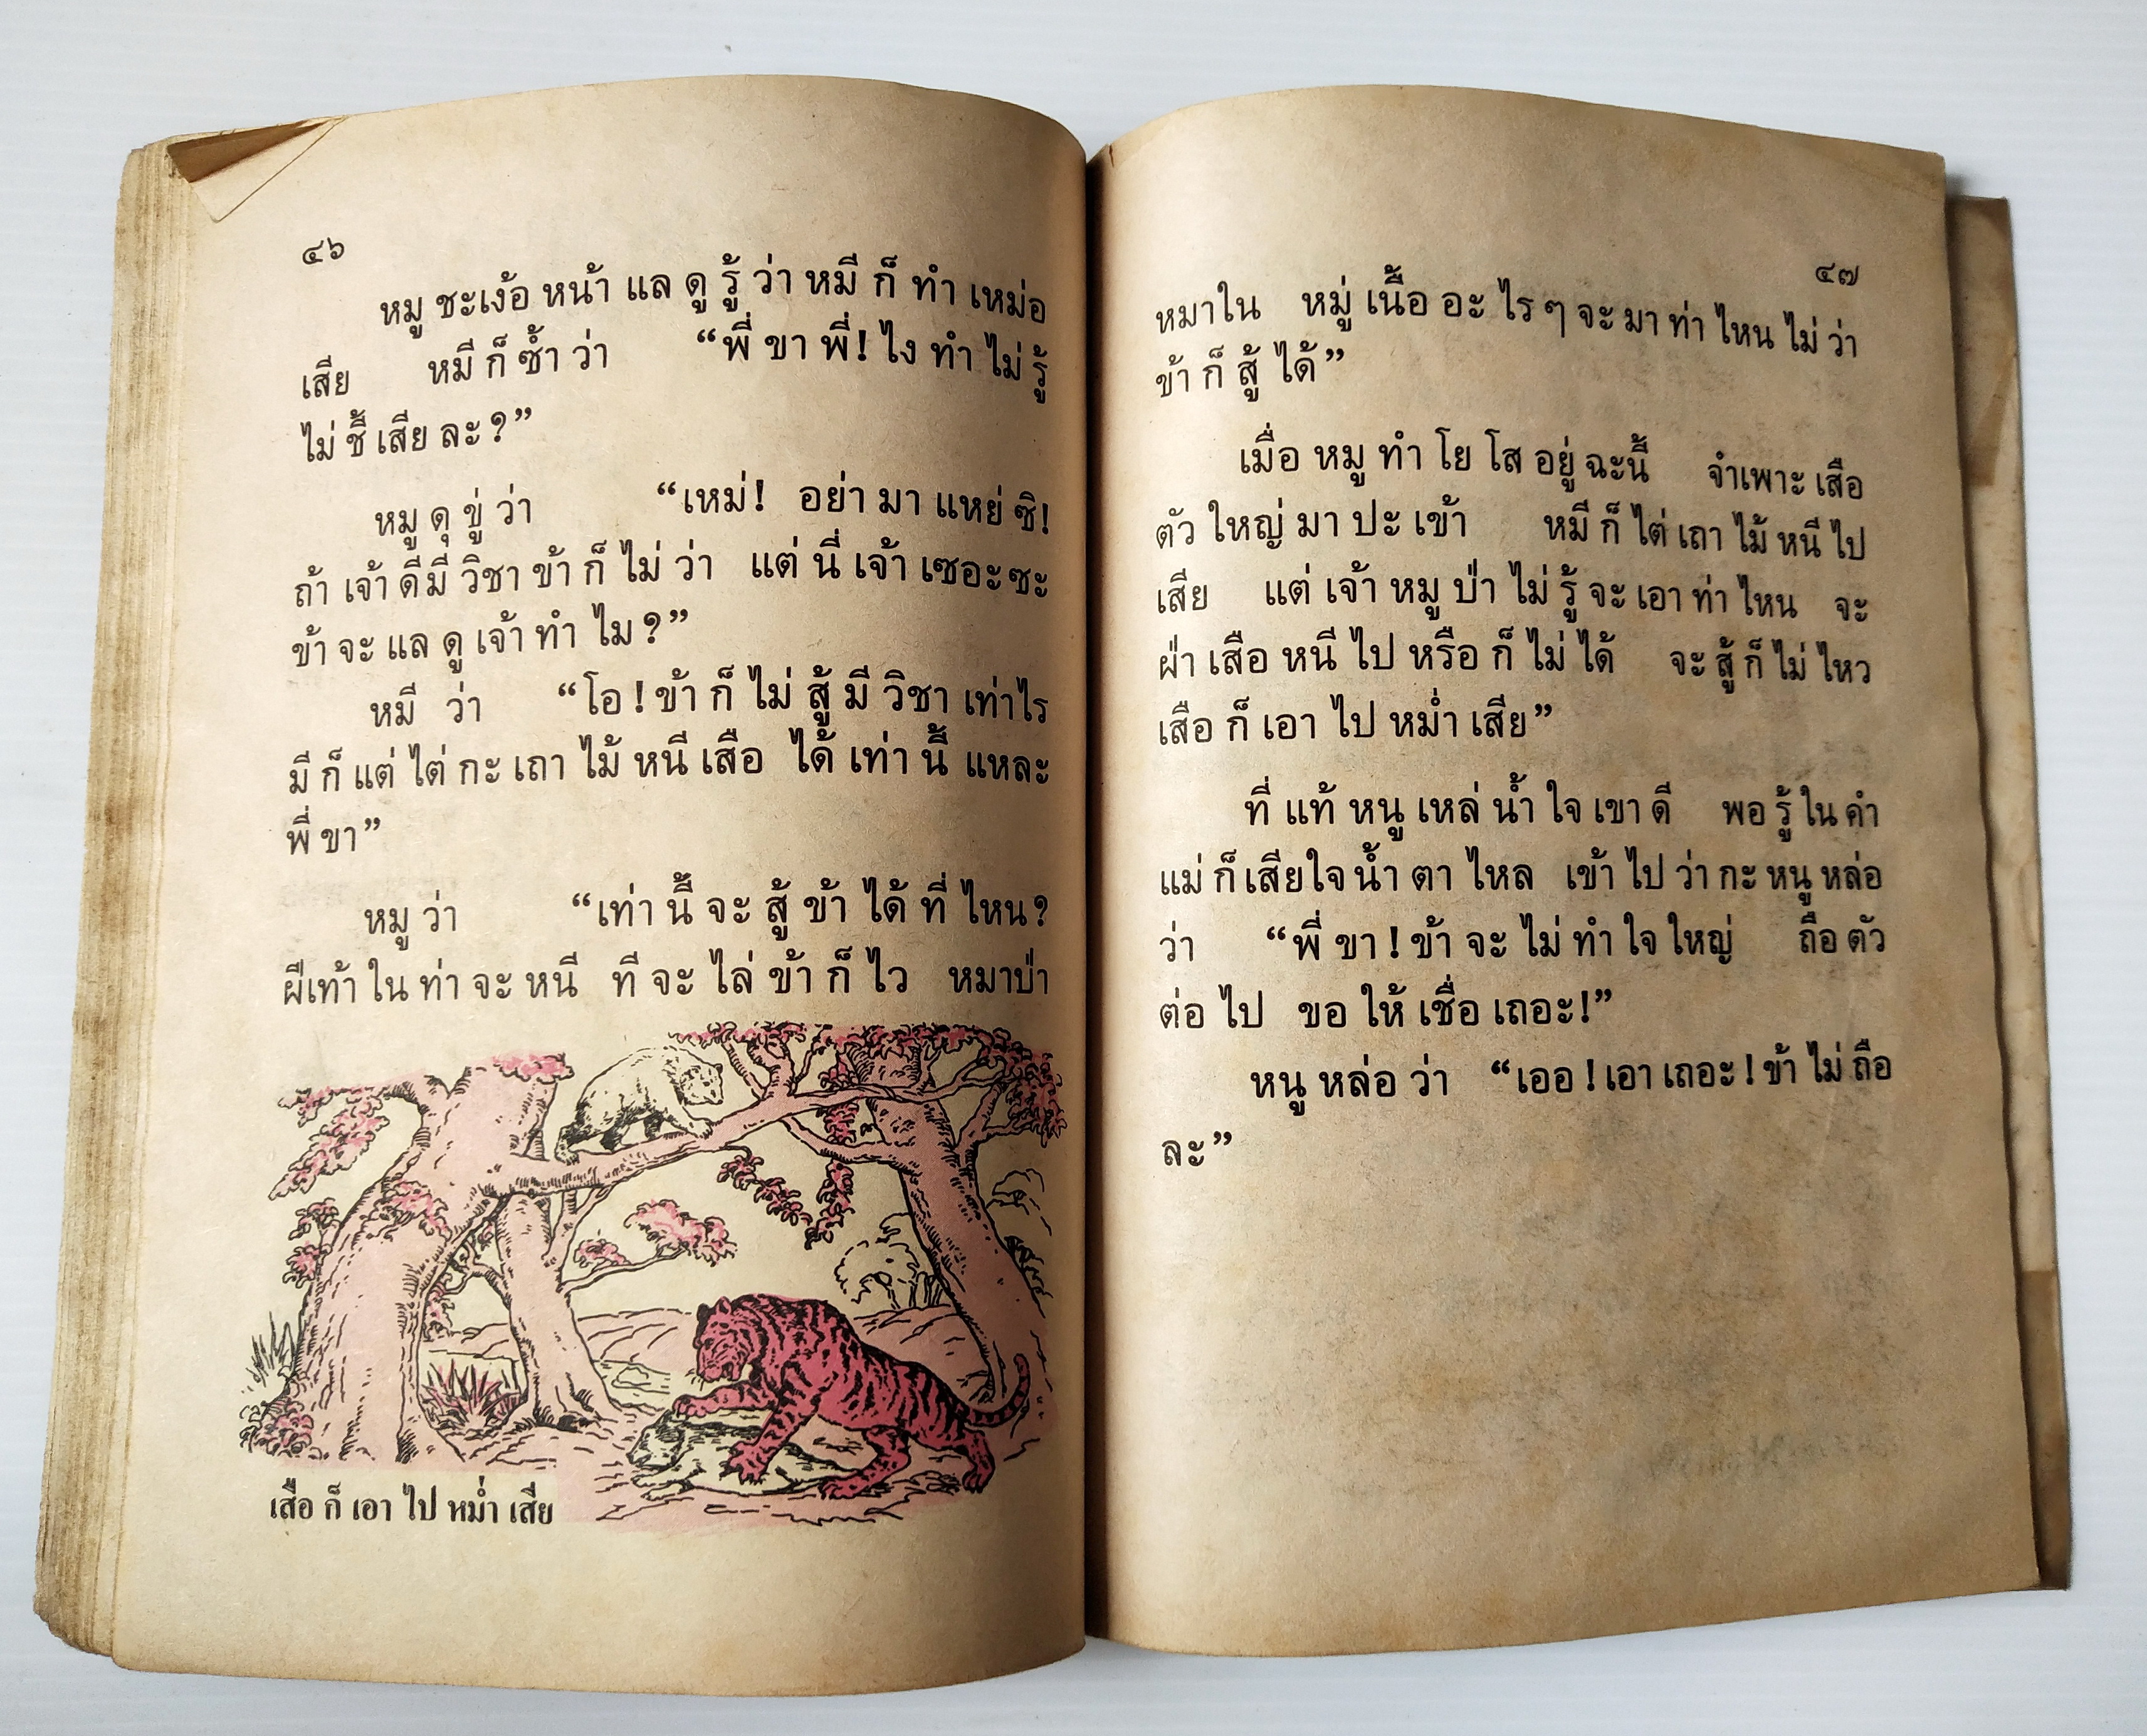 ๔๖
หมู ชะเง้อ หน้า แล ดู รู้ ว่า หมี ก็ ทำ เหม่อ
เสีย หมี ก็ ซ้ำ ว่า “พี่ ขา พี่! ไง ทำ ไม่ รู้
ไม่ ชี้ เสีย ละ?”
หมู ดุ ขู่ ว่า “เหม่! อย่า มา แหย่ ซิ!
ถ้า เจ้า ดี มี วิชา ข้า ก็ ไม่ ว่า แต่ นี่ เจ้า เซอะซะ
ข้า จะ แล ดู เจ้า ทำ ไม?”
หมี ว่า “โอ! ข้า ก็ ไม่ สู้ มี วิชา เท่าไร
มี ก็ แต่ ไต่ กะ เถา ไม้ หนี เสือ ได้ เท่า นี้ แหละ
พี่ ขา”
หมู ว่า “เท่า นี้ จะ สู้ ข้า ได้ ที่ ไหน?
ฝีเท้า ใน ท่า จะ หนี ที จะ ไล่ ข้า ก็ ไว หมาป่า
เสือ ก็ เอา ไป หม่ำ เสีย
๔๗
หมาใน หมู่ เนื้อ อะ ไร ๆ จะ มา ท่า ไหน ไม่ ว่า
ข้า ก็ สู้ ได้”
เมื่อ หมู ทำ โย โส อยู่ ฉะนี้ จำเพาะ เสือ
ตัว ใหญ่ มา ปะ เข้า หมี ก็ ไต่ เถา ไม้ หนี ไป
เสีย แต่ เจ้า หมู ป่า ไม่ รู้ จะ เอา ท่า ไหน จะ
ฝ่า เสือ หนี ไป หรือ ก็ ไม่ ได้ จะ สู้ ก็ ไม่ ไหว
เสือ ก็ เอา ไป หม่ำ เสีย”
ที่ แท้ หนู เหล่ น้ำ ใจ เขา ดี พอ รู้ ใน คำ
แม่ ก็ เสียใจ น้ำ ตา ไหล เข้า ไป ว่า กะ หนู หล่อ
ว่า “พี่ ขา! ข้า จะ ไม่ ทำ ใจ ใหญ่ ถือ ตัว
ต่อ ไป ขอ ให้ เชื่อ เถอะ!”
หนู หล่อ ว่า “เออ! เอา เถอะ! ข้า ไม่ ถือ
ละ”